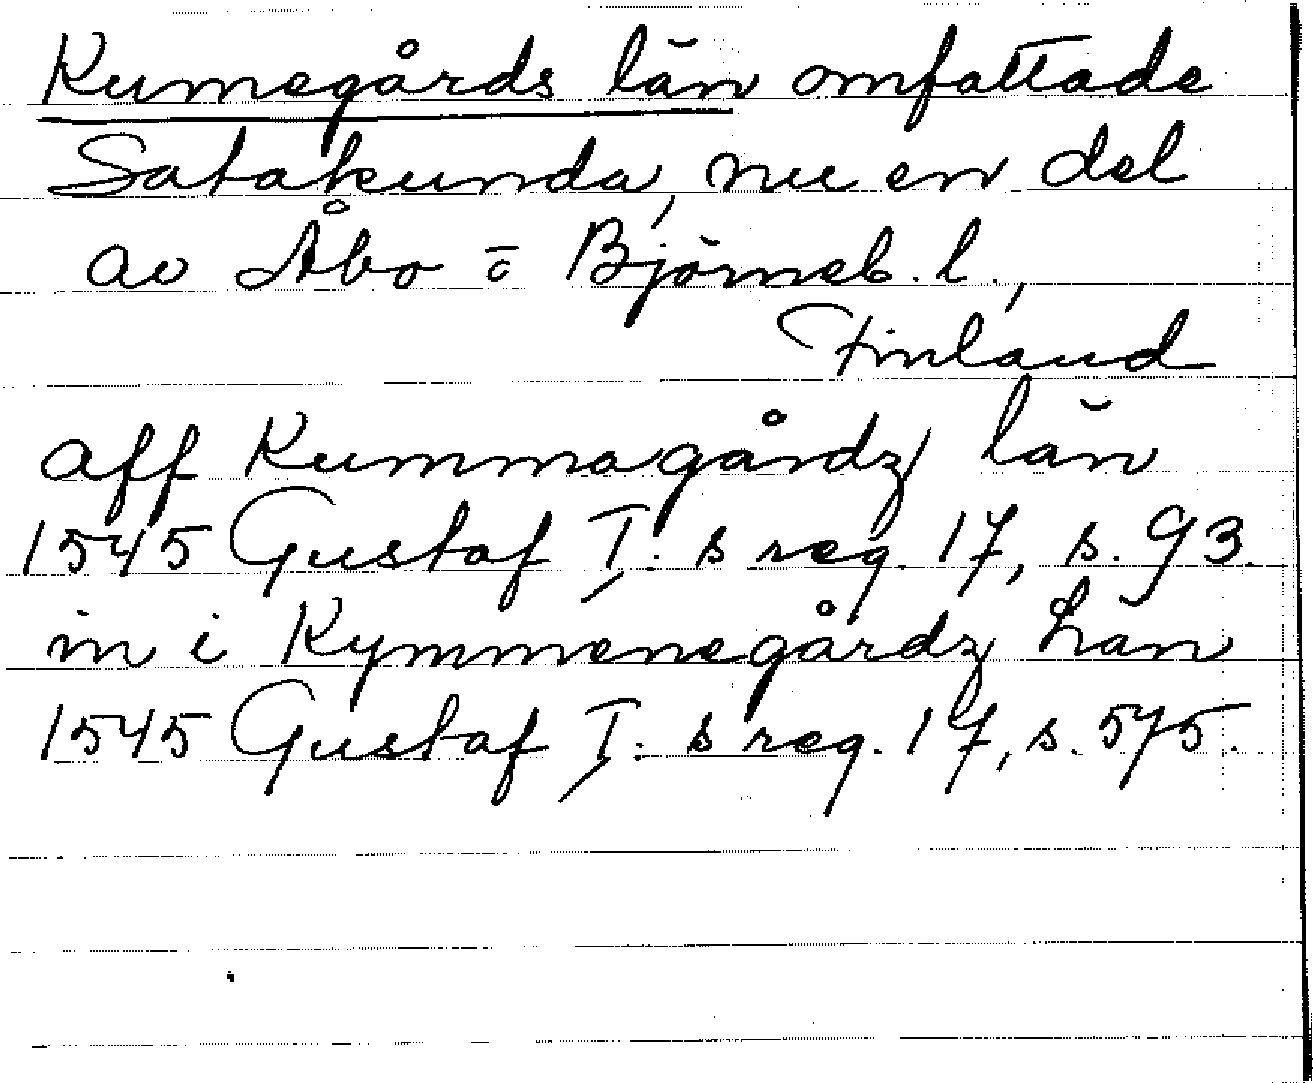 Kumogårds län omfattade
Satakunda, nu en del
av Åbo o Björneb. l.,
Finland
aff Kummogårdz län
1545 Gustaf I:s reg. 17, s. 93.
in i Kymmenegårdz Län
1545 Gustaf I:s reg. 17, s. 575.